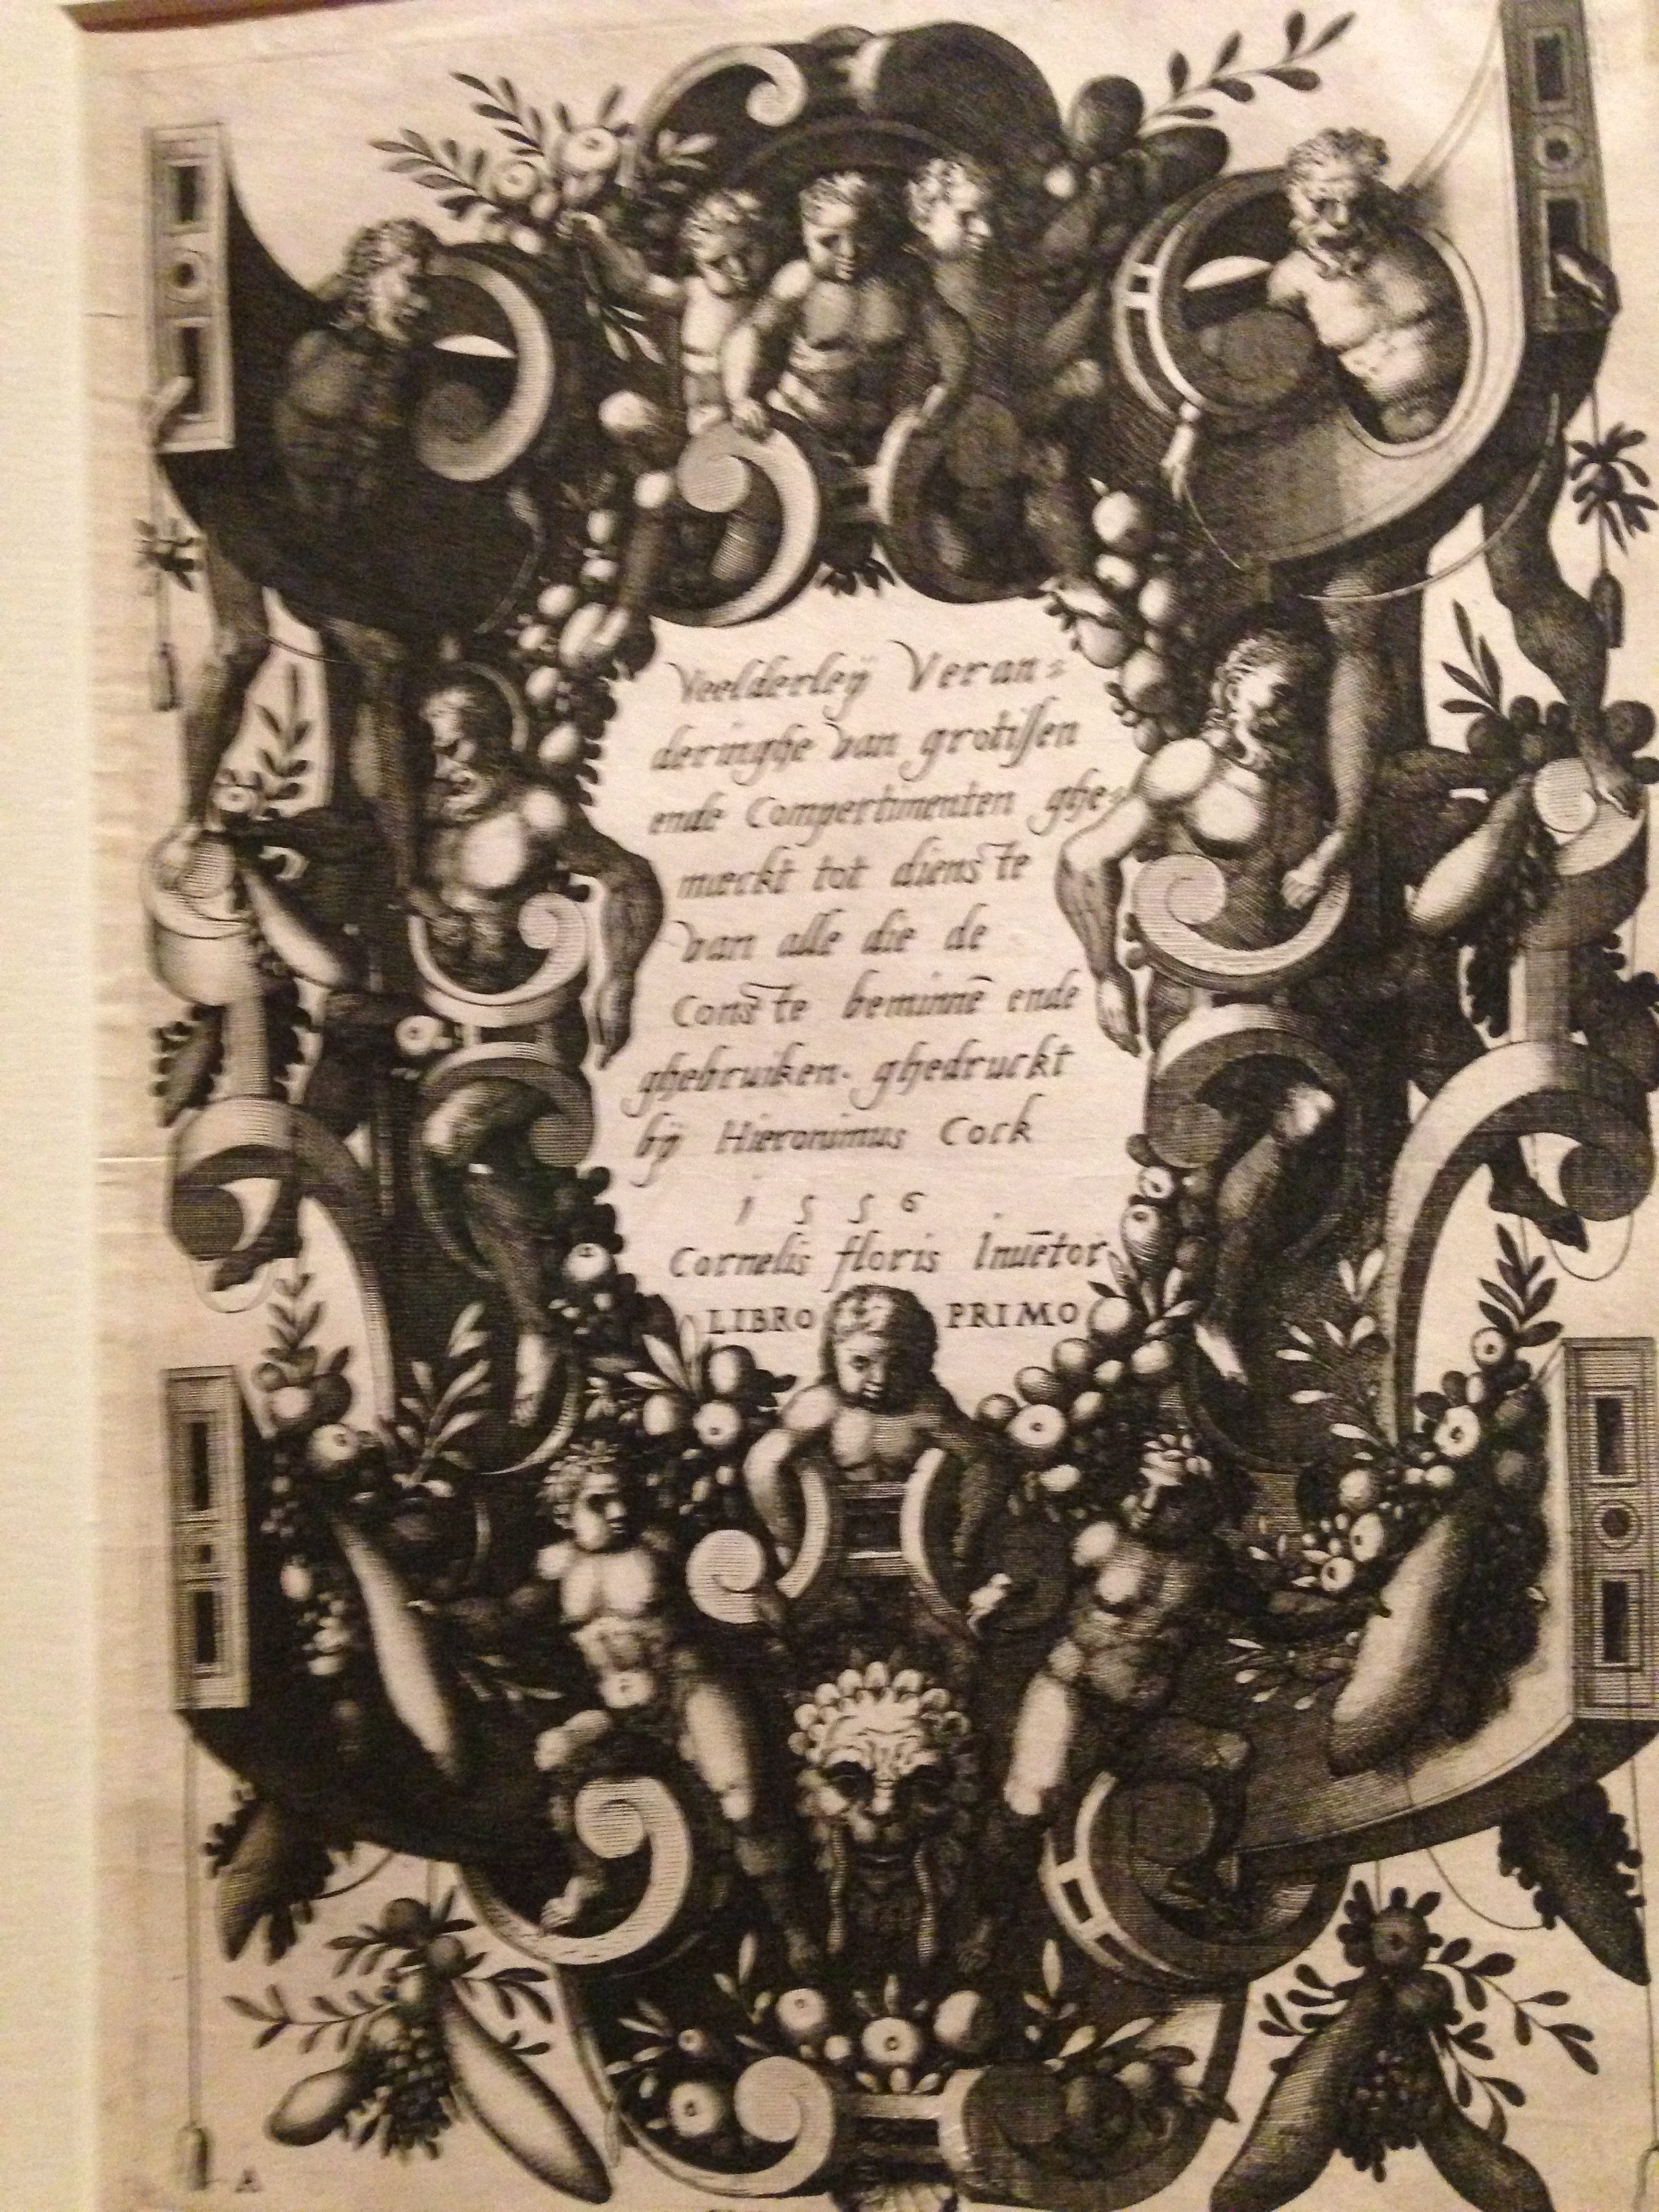 Veelderleÿ Veran=
deringhe van grotissen
ende Compertimenten ghe=
maeckt tot dienste
van alle die de
Conste beminnē ende
ghebruiken. ghedruckt
bÿ Hieronimus Cock
1556
Cornelis floris Inuētor
LIBRO PRIMO
A